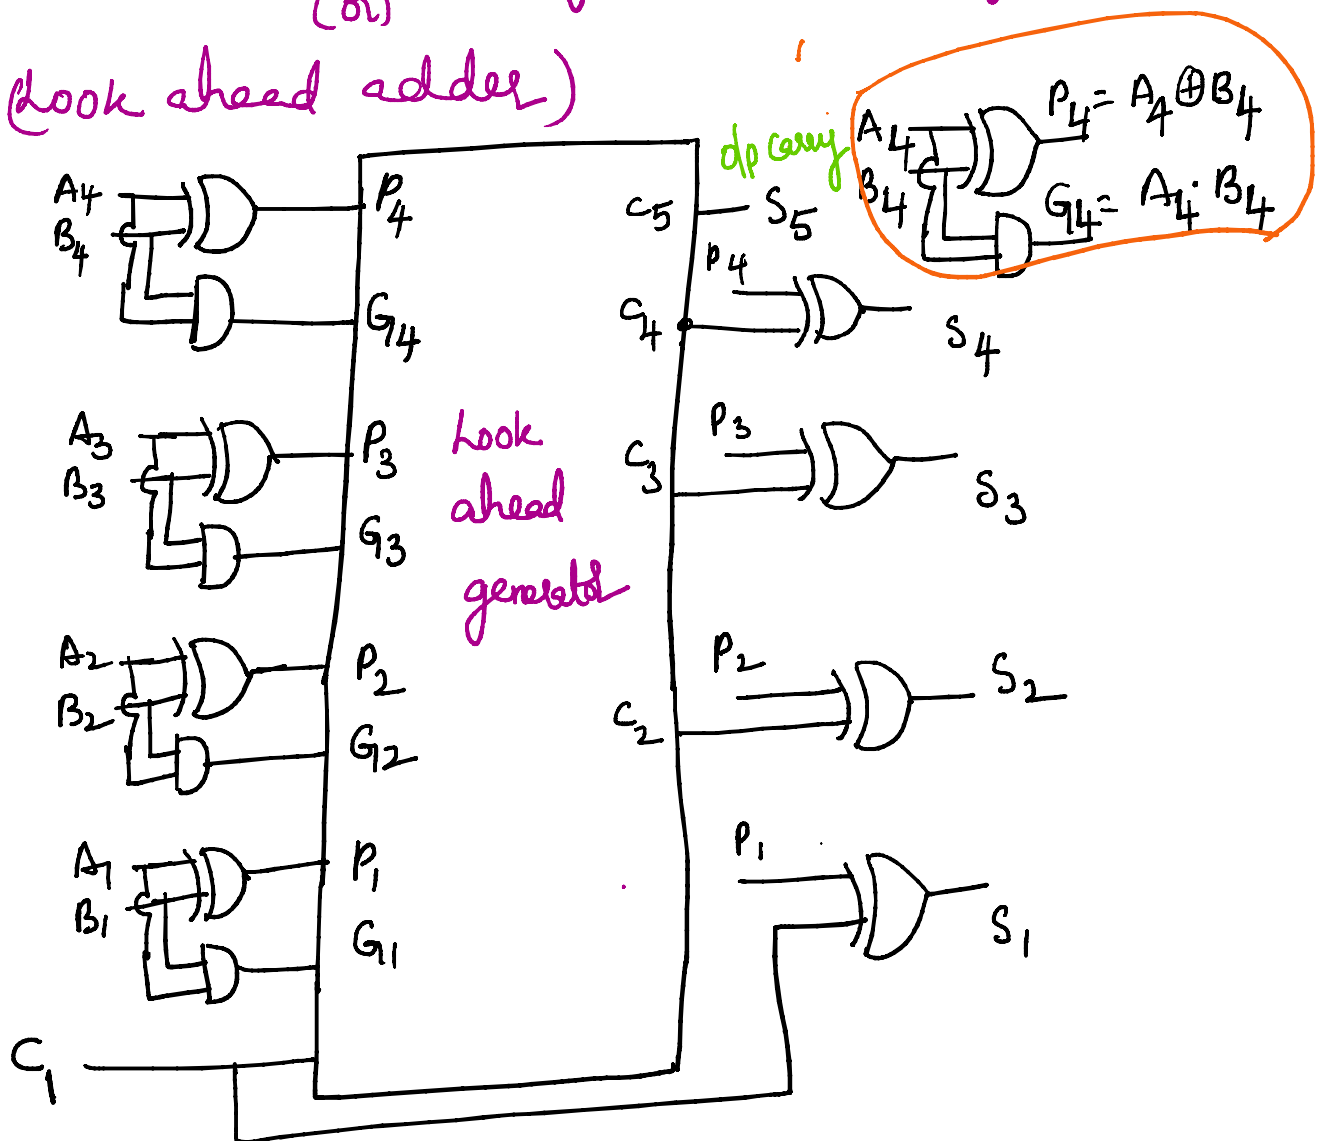 (or)
(Look ahead adder)
A4
B4
P4
G4
A3
B3
P3
G3
A2
B2
P2
G2
A1
B1
P1
G1
C1
Look
ahead
generator
C5
C4
C3
C2
o/p carry
S5
P4
S4
P3
S3
P2
S2
P1
S1
A4
B4
P4 = A4 ⊕ B4
G4 = A4 · B4